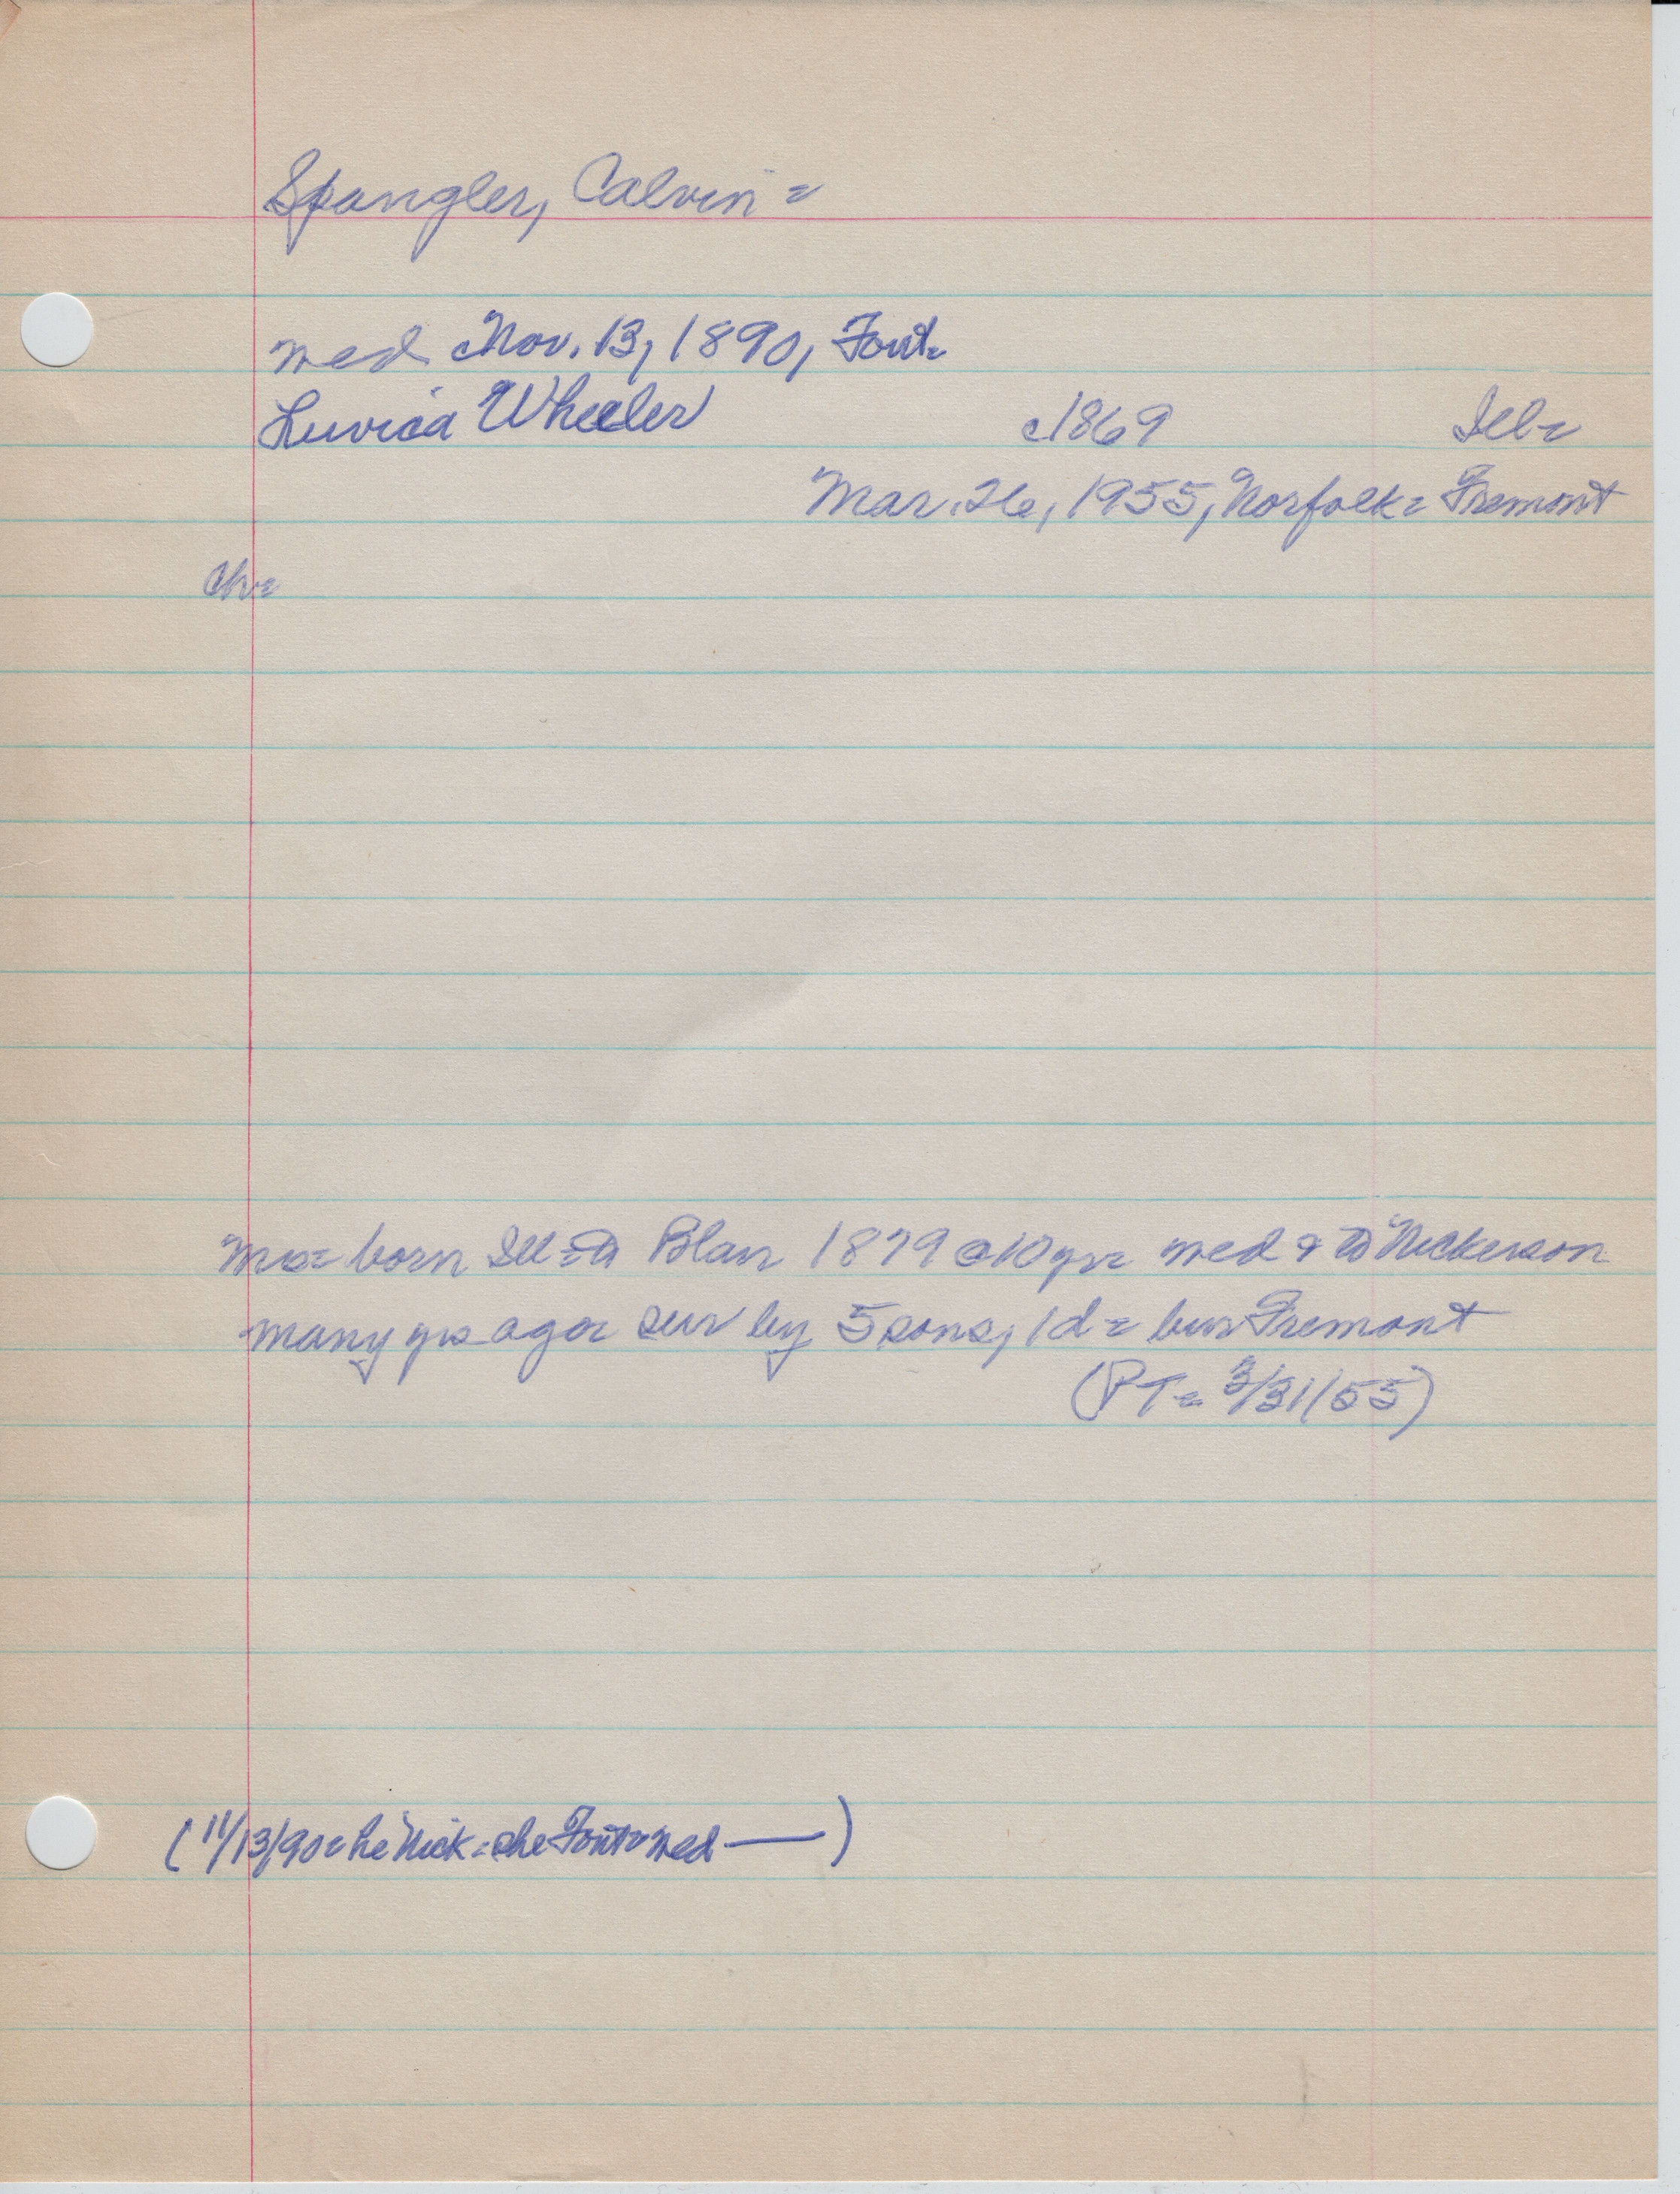 Spangler, Calvin =
med Nov. 13, 1890, Font=
Luvica Wheeler c1869 Ill=
Mar. 26, 1955, Norfolk = Fremont
Ch=
Mo= born Ill= to Blair 1879 @ 10 yr= med & to Nickerson
many yrs ago= sur by 5 sons, 1 d= bur Fremont
(PT= 3/31/55)
(11/13/90= he Nick= she Font= med —)